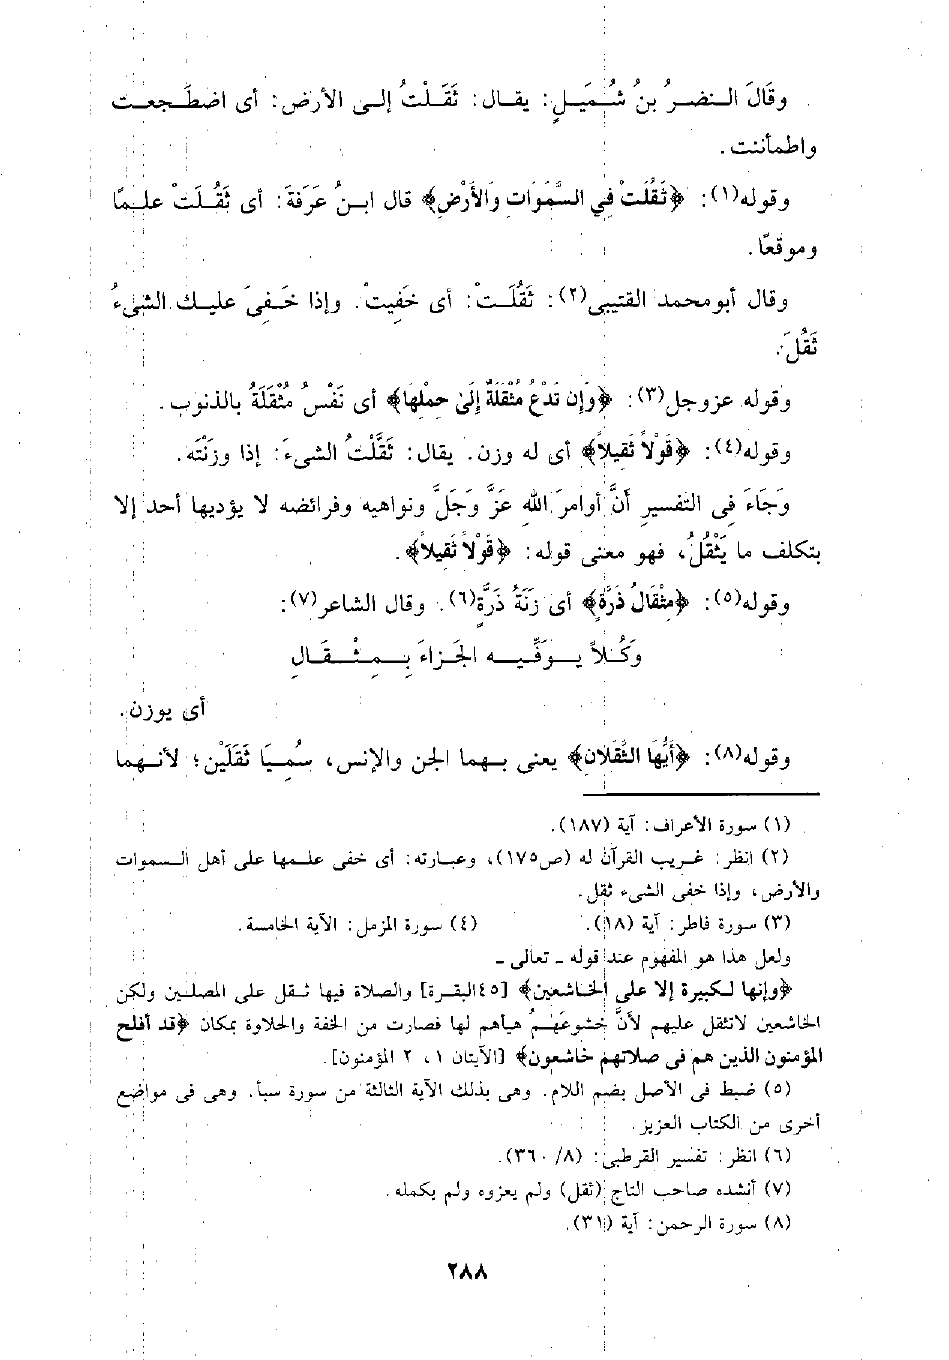 وقَالَ النضرُ بنُ شُمَيلٍ: يقال: ثَقَلْتُ إلى الأرض: أى اضطَّجعت
واطمأننت.
وقوله(١): ﴿ثَقُلَتْ فِي السَّمَوَاتِ وَالأَرْضِ﴾ قال ابنُ عَرَفَةَ: أى ثَقُلَتْ علمًا
وموقعًا.
وقال أبومحمد القتيبى(٢): ثَقُلَتْ: أى خَفِيتْ. وإذا خَفِىَ عليك الشىءُ
ثَقُلَ.
وقوله عزوجل(٣): ﴿وَإِن تَدْعُ مُثْقَلَةٌ إِلَىٰ حِمْلِهَا﴾ أى نَفْس مُثْقَلَةُ بالذنوب.
وقوله(٤): ﴿قَوْلاً ثَقِيلاً﴾ أى له وزن. يقال: ثَقَّلْتُ الشىءَ: إذا وزنْته.
وَجَاءَ فِى التفسيرِ أنَّ أوامرَ اللهِ عَزَّ وَجَلَّ ونواهيه وفرائضه لا يؤديها أحد إلا
بتكلف ما يَثْقُلُ، فهو معنى قوله: ﴿قَوْلاً ثَقِيلاً﴾.
وقوله(٥): ﴿مِثْقَالُ ذَرَّةٍ﴾ أى زِنَةُ ذَرَّة(٦). وقال الشاعر(٧):
وَكُلاًّ يوَفِّيه الجَزاءَ بِمِثْقَالِ
أى يوزن.
وقوله(٨): ﴿أَيُّهَا الثَّقَلانِ﴾ يعنى بهما الجن والإنس، سُمِيَا ثَقَلَيْن؛ لأنهما
(١) سورة الأعراف: آية (١٨٧).
(٢) انظر: غريب القرآن له (ص١٧٥)، وعبارته: أى خفى علمها على أهل السموات
والأرض، وإذا خفى الشىء ثقل.
(٣) سورة فاطر: آية (١٨). (٤) سورة المزمل: الآية الخامسة.
ولعل هذا هو المفهوم عند قوله ـ تعالى ـ
﴿وإنها لكبيرة إلا على الخاشعين﴾ [٤٥البقرة] والصلاة فيها ثقل على المصلين ولكن
الخاشعين لاتثقل عليهم لأنَّ خشوعَهَمُ هيأهم لها فصارت من الخفة والحلاوة بمكان ﴿قد أفلح
المؤمنون الذين هم فى صلاتهم خاشعون﴾ [الآيتان ١، ٢ المؤمنون].
(٥) ضبط فى الأصل بضم اللام. وهى بذلك الآية الثالثة من سورة سبأ. وهى فى مواضع
أخرى من الكتاب العزيز.
(٦) انظر: تفسير القرطبى: (٨/ ٣٦٠).
(٧) أنشده صاحب التاج (ثقل) ولم يعزوه ولم يكمله.
(٨) سورة الرحمن: آية (٣١).
٢٨٨